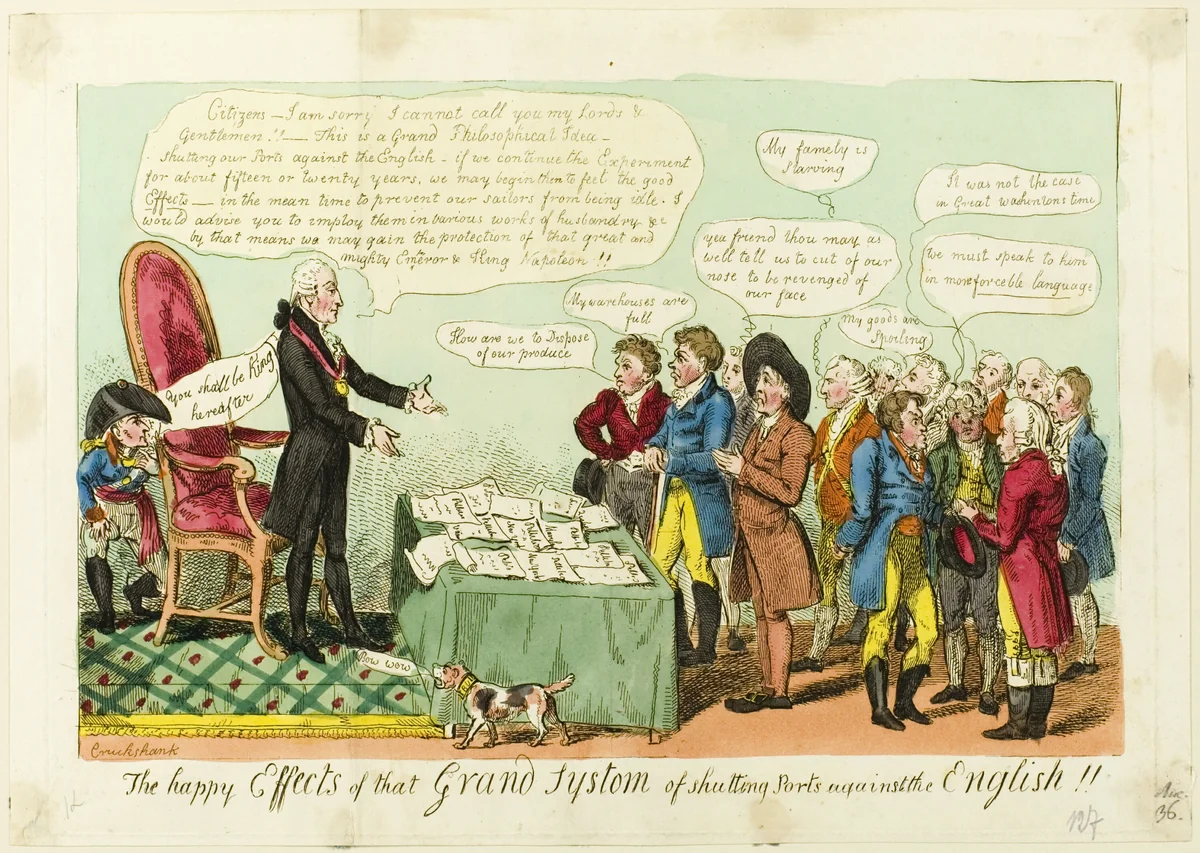 Citizens — I am sorry I cannot call you my Lords &
Gentlemen!! — This is a Grand Philosophical Idea —
shutting our Ports against the English - if we continue the Experiment
for about fifteen or twenty years, we may begin then to feel the good
Effects — in the mean time to prevent our sailors from being idle. I
would advise you to imploy them in various works of husbandry &c
by that means we may gain the protection of that great and
mighty Emperor & King Napoleon!!
You shall be King
hereafter
How are we to Dispose
of our produce
My warehouses are
full
My famely is
Starving
yea friend thou may as
well tell us to cut of our
nose to be revenged of
our face
My goods are
Spoiling
It was not the case
in Great Washintons time
we must speak to him
in more forceble language
Bow wow
Cruikshank
The happy Effects of that Grand Systom of shutting Ports against the English!!
127
36.